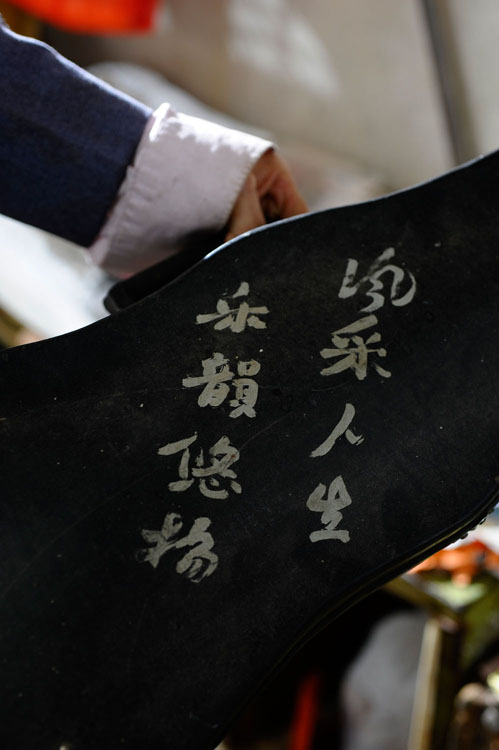 风采人生
乐韻悠扬